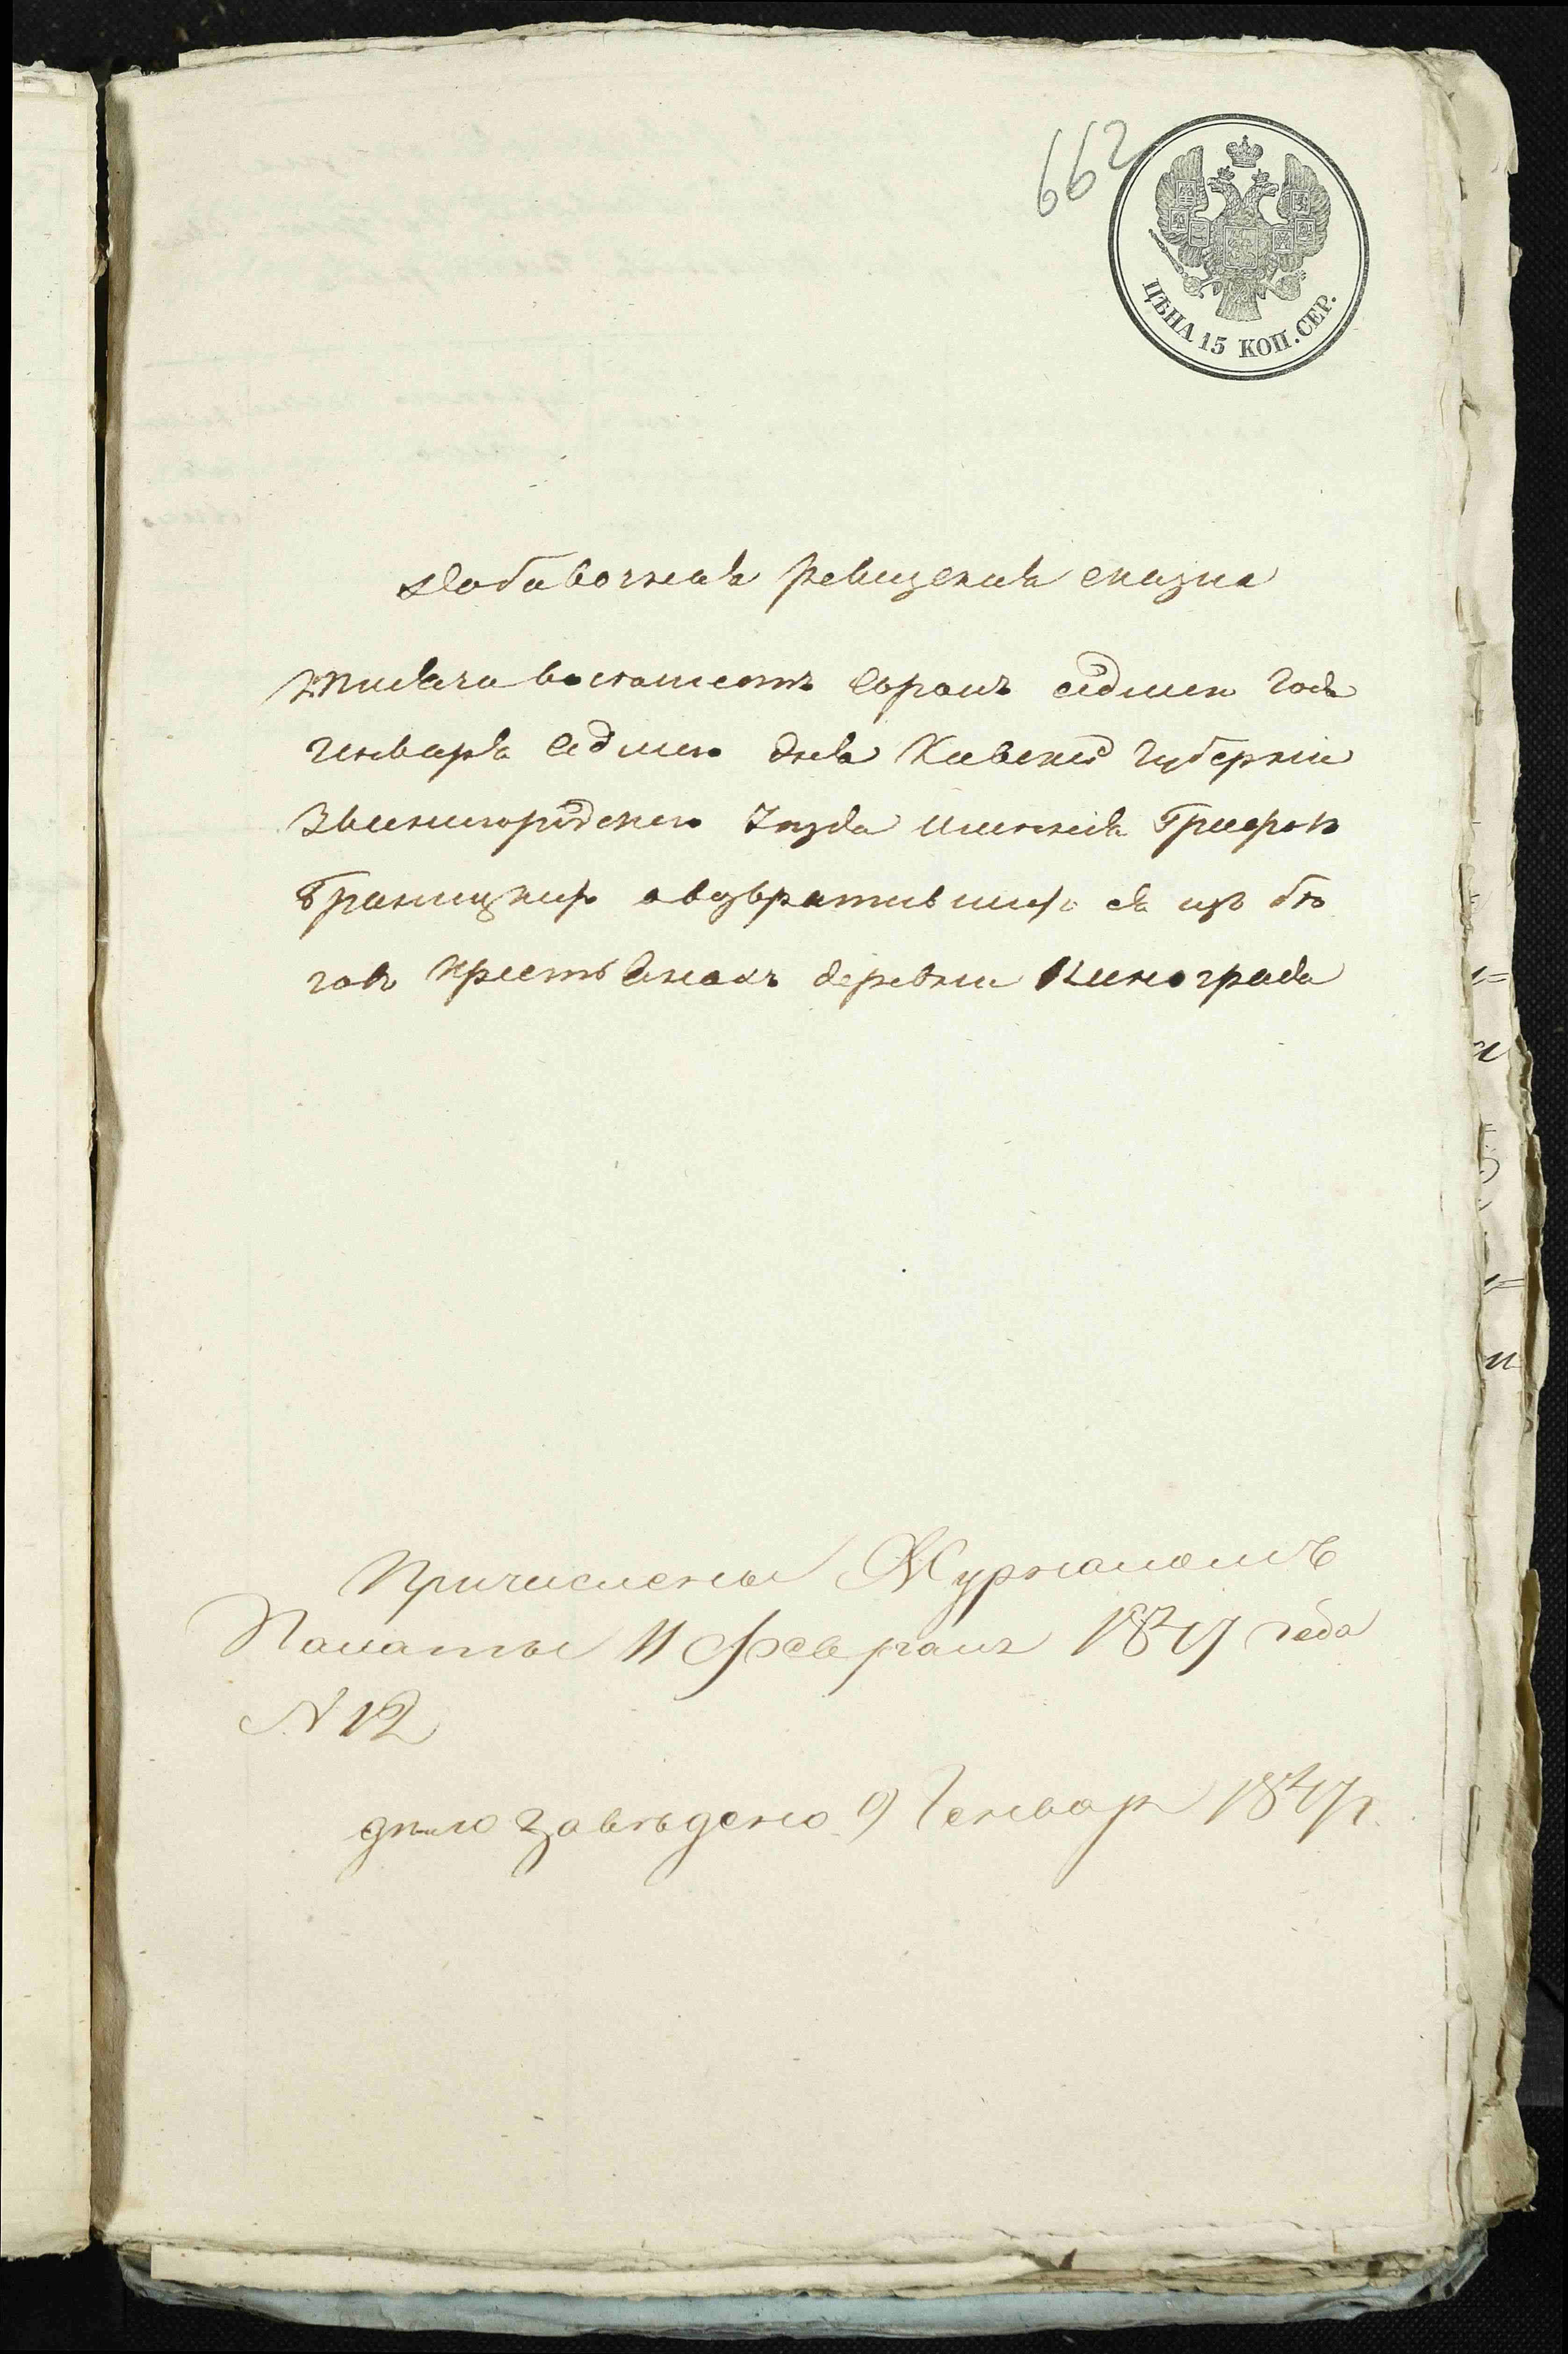 662
ЦѢНА 15 КОП. СЕР.
Добавочная Ревизская сказка
Тысяча восемьсотъ сорокъ седмаго года
Генваря седмаго дня Киевской Губернии
Звенигородского Уѣзда имения Графовъ
Браницкихъ о возвратившихся изъ бѣ
говъ крестьянахъ деревни Кинограда
Причислены Журналомъ
Палаты 11 Февраля 1847 года
N 12
дѣло заведено 9 Генвар 1847 г.